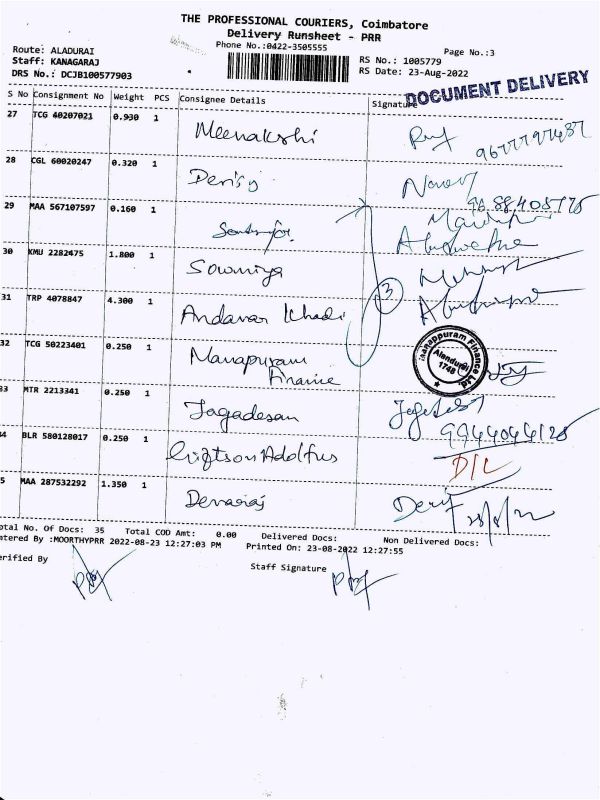 THE PROFESSIONAL COURIERS, Coimbatore
Delivery Runsheet - PRR
Phone No.:0422-3505555
Page No.:3
Route: ALADURAI
Staff: KANAGARAJ
RS No.: 1005779
DRS No.: DCJB100577903
RS Date: 23-Aug-2022
DOCUMENT DELIVERY
S No Consignment No Weight PCS Consignee Details Signature
27 TCG 40207021 0.930 1 Meenakshi
9677797487
28 CGL 60020247 0.320 1
29 MAA 567107597 0.160 1
30 KMU 2282475 1.800 1 Sowmiya
3
31 TRP 4078847 4.300 1 Andavar Khadi
32 TCG 50223401 0.250 1 Manapuram Finance
Manappuram Finance Ltd. Alandurai 1748
33 MTR 2213341 0.250 1 Jagadesan
9944044128
34 BLR 580128017 0.250 1 D/L
35 MAA 287532292 1.350 1 Devaraj
23/8/22
otal No. Of Docs: 35 Total COD Amt: 0.00 Delivered Docs: Non Delivered Docs:
ntered By :MOORTHYPRR 2022-08-23 12:27:03 PM Printed On: 23-08-2022 12:27:55
erified By Staff Signature